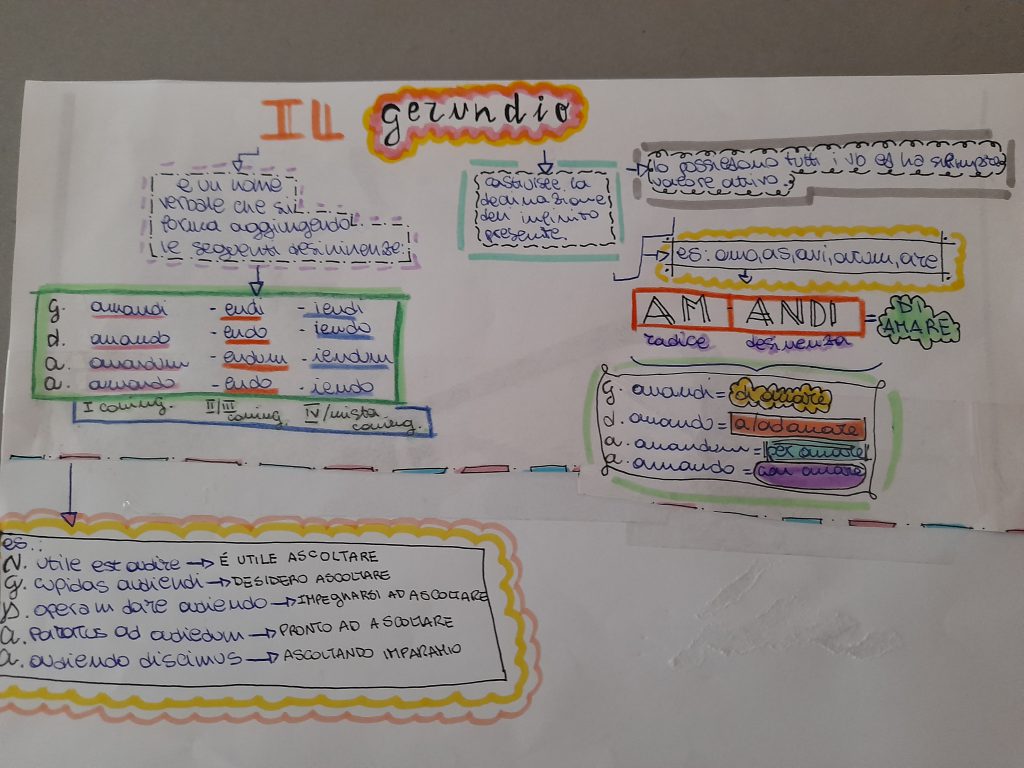 IL gerundio
è un nome
verbale che si
forma aggiungendo
le seguenti desinenze:
costituisce la
declinazione
dell infinito
presente.
lo possiedono tutti i vb ed ha sempre
valore attivo.
es: amo, as, avi, atum, are
AM ANDI = DI AMARE
radice desinenza
g. amandi - endi - iendi
d. amando - endo - iendo
a. amandum - endum - iendum
a. amando - endo - iendo
I coniug. II/III coniug. IV/mista coniug.
g. amandi = di amare
d. amando = a/ad amare
a. amandum = per amare
a. amando = con amare
es:
N. utile est audire → É UTILE ASCOLTARE
g. cupidas audiendi → DESIDERO ASCOLTARE
D. operam dare audiendo → IMPEGNARSI AD ASCOLTARE
a. paratus ad audiedum → PRONTO AD ASCOLTARE
a. audiendo discimus → ASCOLTANDO IMPARIAMO